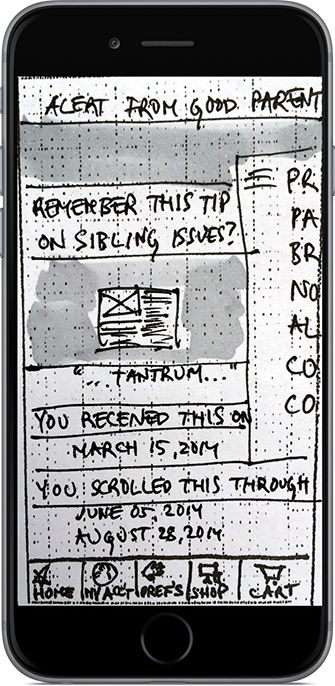 ALEAT FROM GOOD PARENT
REMEMBER THIS TIP
ON SIBLING ISSUES?
"...TANTRUM..."
YOU RECENED THIS ON
MARCH 15, 2014
YOU SCROLLED THIS THROUGH
JUNE 05, 2014
AUGUST 28, 2014
PR
PA
BR
NO
AL
CO
CO
HOME
MY ACCT
PREF'S
SHOP
CART